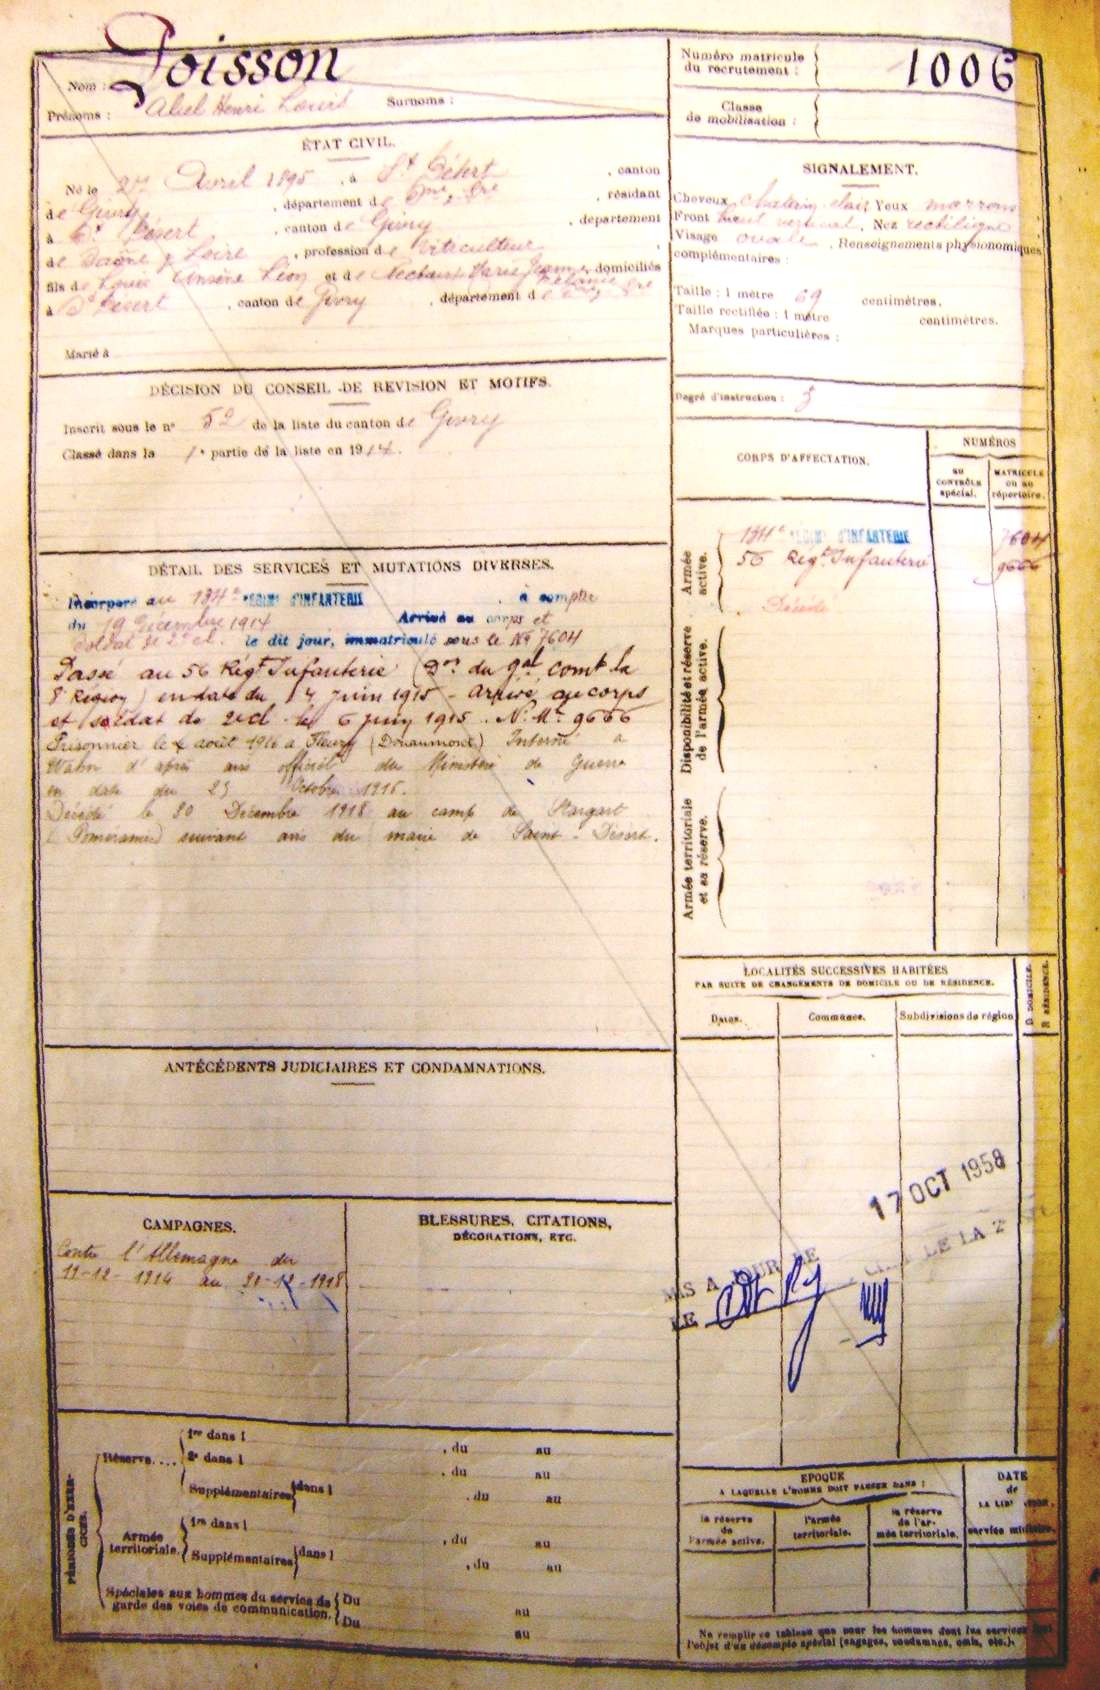 Nom : Poisson
Prénoms : Abel Henri Louis Surnoms :
Numéro matricule du recrutement : 1006
Classe de mobilisation :
ÉTAT CIVIL.
Né le 27 Avril 1895, à St Désert, canton
de Givry, département de Sne & Lre, résidant
à St Désert, canton de Givry, département
de Saône & Loire, profession de viticulteur,
fils de Louis Léon et de Marie Jeanne domiciliés
à St Désert, canton de Givry, département de Sne & Lre
Marié à
SIGNALEMENT.
Cheveux chatain clair Yeux marrons,
Front haut vertical, Nez rectiligne
Visage ovale, Renseignements physionomiques
complémentaires :
Taille : 1 mètre 69 centimètres.
Taille rectifiée : 1 mètre centimètres.
Marques particulières :
Degré d'instruction : 3
DÉCISION DU CONSEIL DE REVISION ET MOTIFS.
Inscrit sous le n° 52 de la liste du canton de Givry
Classé dans la 1e partie de la liste en 1914.
CORPS D'AFFECTATION.
NUMÉROS
AU CONTRÔLE spécial.
MATRICULE ou au répertoire.
Armée active.
134e RÉGIMt D'INFANTERIE 7604
56 Régt Infanterie 9666
Décédé
Disponibilité et réserve de l'armée active.
Armée territoriale et sa réserve.
DÉTAIL DES SERVICES ET MUTATIONS DIVERSES.
Incorporé au 134e RÉGIMt D'INFANTERIE à compter
du 19 Décembre 1914 Arrivé au corps et
soldat de 2e cl. le dit jour, immatriculé sous le No 7604
Passé au 56 Régt Infanterie (Don du Gal comt la
8e Région) en date du 4 juin 1915 - arrivé au corps
et soldat de 2e cl. le 6 juin 1915. No Mle 9666
Prisonnier le août 1916 à Fleury (Douaumont) Interné à
Wahn d'après avis officiel du Ministère de Guerre
en date du 23 Octobre 1916.
Décédé le 20 Décembre 1918 au camp de Stargart
(Poméranie) suivant avis du maire de Saint-Désert.
LOCALITÉS SUCCESSIVES HABITÉES
PAR SUITE DE CHANGEMENTS DE DOMICILE OU DE RÉSIDENCE.
Dates. Commune. Subdivisions de région D DOMICILE. R RÉSIDENCE.
ANTÉCÉDENTS JUDICIAIRES ET CONDAMNATIONS.
CAMPAGNES.
Contre l'Allemagne du
19-12-1914 au 20-12-1918
BLESSURES, CITATIONS,
DÉCORATIONS, ETC.
17 OCT 1958
MIS A JOUR LE
LE
PÉRIODES D'EXERCICES.
Réserve.... 1re dans l , du au
2e dans l , du au
Supplémentaires dans l , du au
Armée territoriale. 1re dans l , du au
Supplémentaires dans l , du au
Spéciales aux hommes du service de garde des voies de communication. Du au
Du au
EPOQUE
A LAQUELLE L'HOMME DOIT PASSER DANS :
la réserve de l'armée active.
l'armée territoriale.
la réserve de l'armée territoriale.
DATE de
service militaire.
Ne remplir ce tableau que pour les hommes dont les services font
l'objet d'un décompte spécial (engagés, condamnés, omis, etc.).